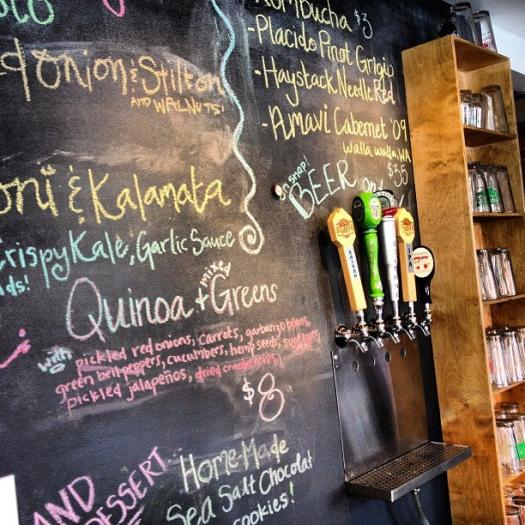 Kombucha $3
-Placido Pinot Grigio
-Haystack Needle Red
-Amavi Cabernet '09
walla walla, WA
$35
oh snap!
BEER on
Onion & Stilton
AND WALNUTS!
& Kalamata
Crispy Kale, Garlic Sauce
Quinoa + mixed Greens
with pickled red onions, carrots, garbanzo beans,
green bell peppers, cucumbers, hemp seeds,
pickled jalapeños, dried cranberries,
$8
AND DESSERT
Home-Made
Sea Salt Chocolat
cookies!